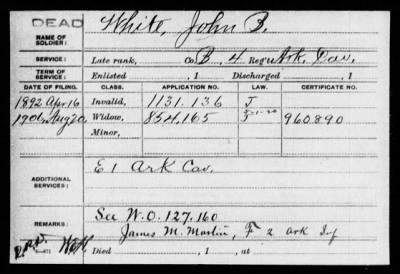 DEAD
NAME OF SOLDIER: White, John B.
SERVICE: Late rank, Co. B, 4 Reg't Ark. Cav.
TERM OF SERVICE: Enlisted , 1 Discharged , 1
DATE OF FILING. CLASS. APPLICATION NO. LAW. CERTIFICATE NO.
1892 Apr 16 Invalid, 1131.136 J
1906 Aug 20 Widow, 854,165 960890
Minor,
ADDITIONAL SERVICES: E 1 Ark Cav.
REMARKS: See W.O. 127,160
James M. Martin, F 2 Ark Inf
Died , 1 , at